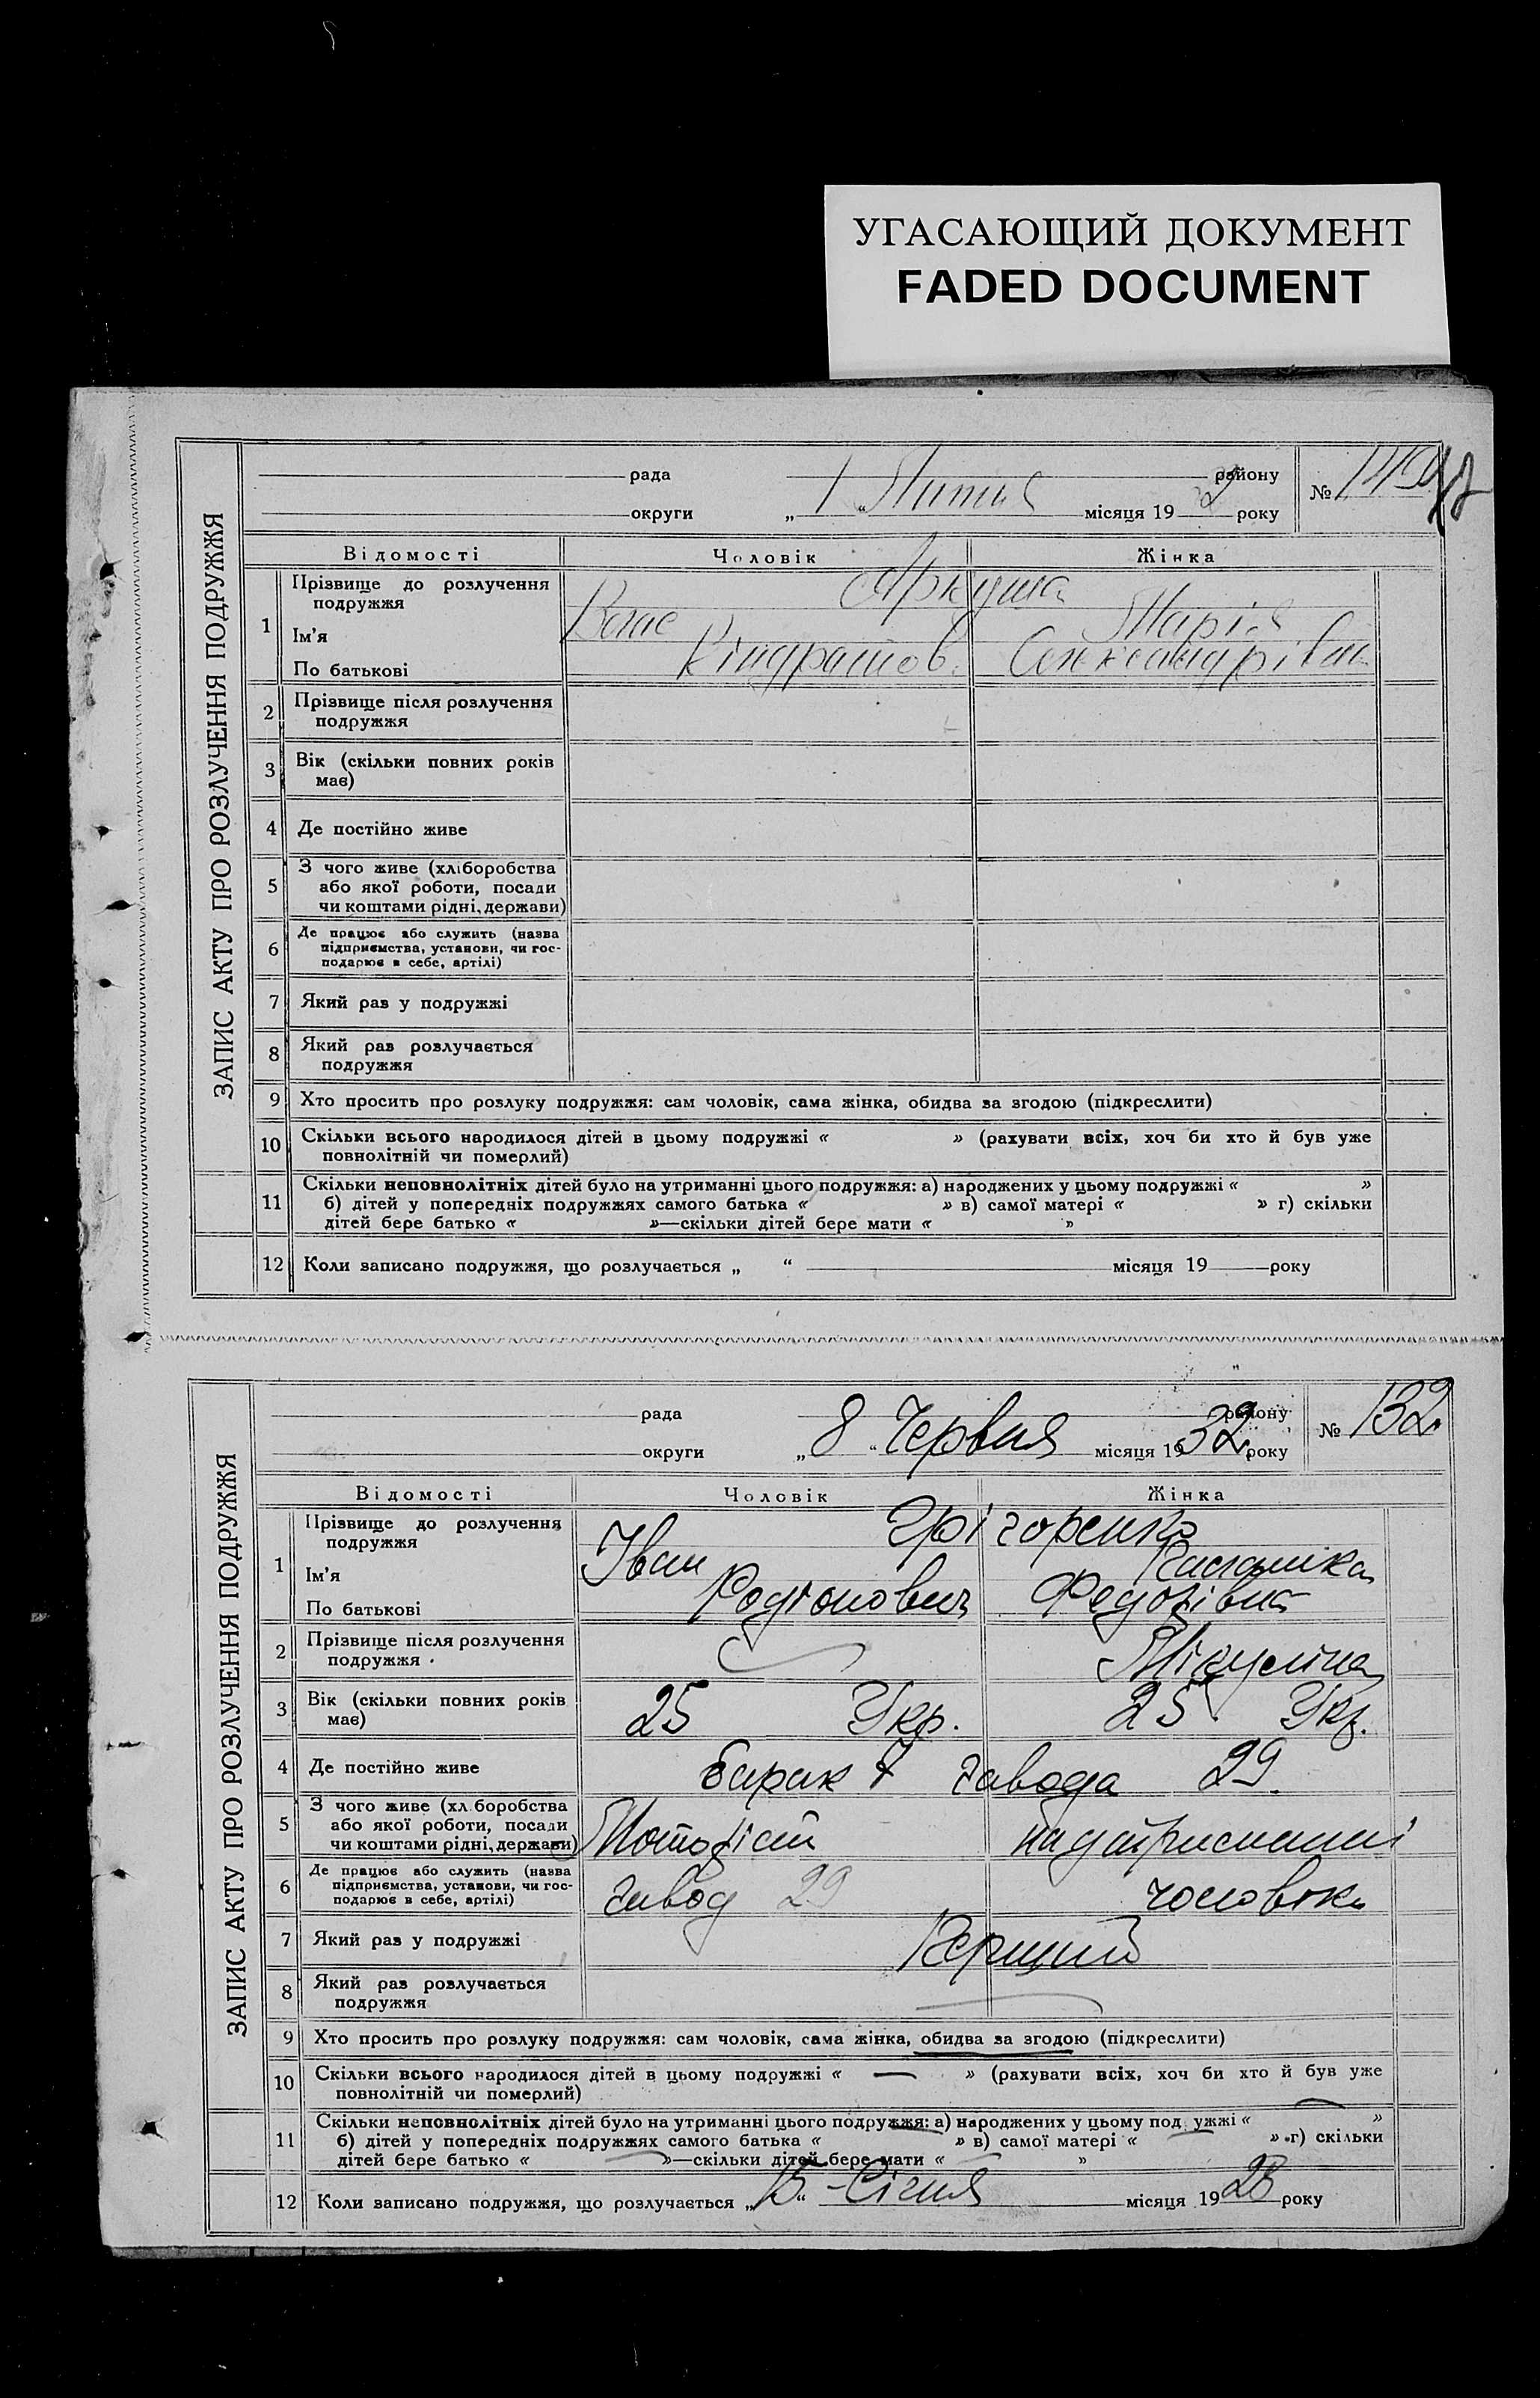 УГАСАЮЩИЙ ДОКУМЕНТ
FADED DOCUMENT
ЗАПИС АКТУ ПРО РОЗЛУЧЕННЯ ПОДРУЖЖЯ
рада району
округи „ 1 “ Липня місяця 19 2 року №
Відомості Чоловік Жінка
1 Прізвище до розлучення подружжя Аркуша
Ім'я Влас Марія
По батькові Кіндратов. Олександрівна
2 Прізвище після розлучення
подружжя
3 Вік (скільки повних років
має)
4 Де постійно живе
5 З чого живе (хліборобства
або якої роботи, посади
чи коштами рідні, держави)
6 Де працює або служить (назва
підприємства, установи, чи гос-
подарює в себе, артілі)
7 Який раз у подружжі
8 Який раз розлучається
подружжя
9 Хто просить про розлуку подружжя: сам чоловік, сама жінка, обидва за згодою (підкреслити)
10 Скільки всього народилося дітей в цьому подружжі « » (рахувати всіх, хоч би хто й був уже
повнолітній чи померлий)
11 Скільки неповнолітніх дітей було на утриманні цього подружжя: а) народжених у цьому подружжі « »
б) дітей у попередніх подружжях самого батька « » в) самої матері « » г) скільки
дітей бере батько « »—скільки дітей бере мати « »
12 Коли записано подружжя, що розлучається „ “ місяця 19 року
ЗАПИС АКТУ ПРО РОЗЛУЧЕННЯ ПОДРУЖЖЯ
рада району
округи „ 8 “ Червня місяця 1932 року № 132
Відомості Чоловік Жінка
1 Прізвище до розлучення подружжя Григоренко
Ім'я Іван
По батькові Родіонович Федорівна
2 Прізвище після розлучення
подружжя Мікуліна
3 Вік (скільки повних років
має) 25 Укр. 25 Укр.
4 Де постійно живе Барак 7 завода 29
5 З чого живе (хліборобства
або якої роботи, посади
чи коштами рідні, держави) на утриманні
6 Де працює або служить (назва
підприємства, установи, чи гос-
подарює в себе, артілі) завод 29 чоловіка
7 Який раз у подружжі Перший
8 Який раз розлучається
подружжя
9 Хто просить про розлуку подружжя: сам чоловік, сама жінка, обидва за згодою (підкреслити)
10 Скільки всього народилося дітей в цьому подружжі « — » (рахувати всіх, хоч би хто й був уже
повнолітній чи померлий)
11 Скільки неповнолітніх дітей було на утриманні цього подружжя: а) народжених у цьому подружжі « »
б) дітей у попередніх подружжях самого батька « » в) самої матері « » г) скільки
дітей бере батько « »—скільки дітей бере мати « »
12 Коли записано подружжя, що розлучається „15“ Січня місяця 1928 року